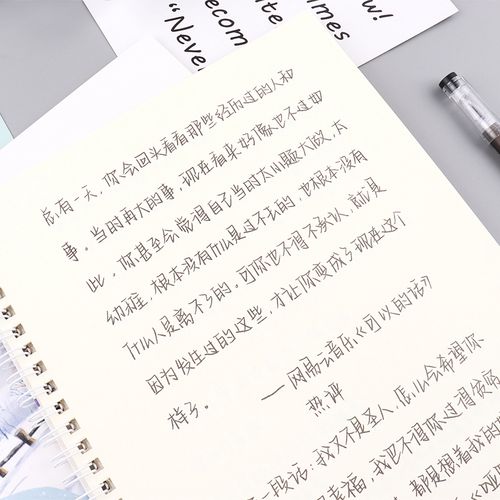 ow!
ecom
imes
ite
“Neve
总有一天，你会回头看看那些经历过的人和
事。当时再大的事，现在看来好像也不过如
此。你甚至会觉得自己当时太小题大做，太
幼稚，根本没有什么是过不去的，也根本没有
什么人是离不了的。可你也不得不承认，就是
因为发生过的这些，才让你变成了现在这个
样子。 ——网易云音乐《可以的话》
热评
一段话：我又不是圣人，怎么会希望你
幸福，我巴不得你过得
都是想着我的